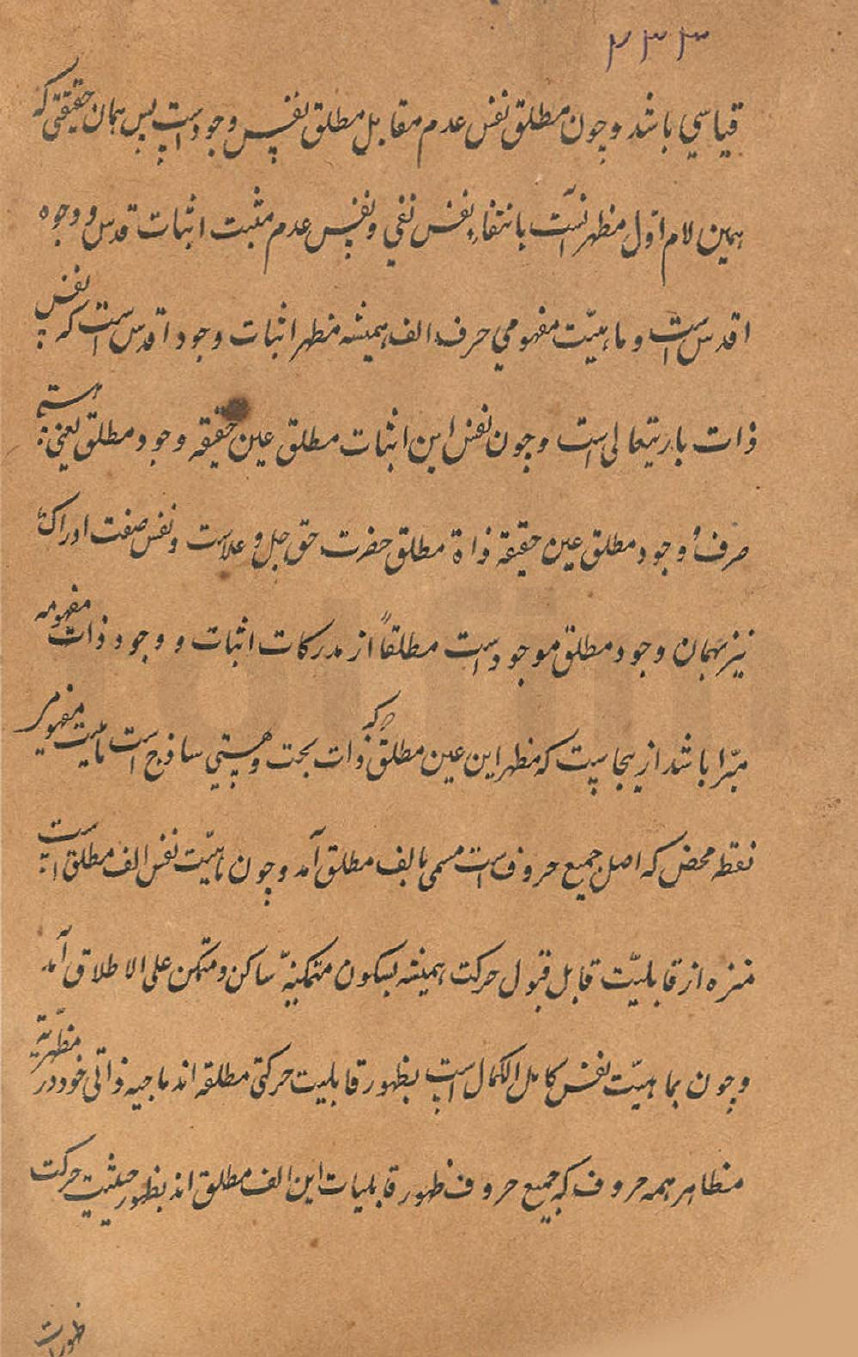 ۲۳۳
قیاسی باشد وچون مطلق نفس عدم مقابل مطلق نفس وجود است پس همان حقیقتی که
همین لام اول مظهر آنست بانتفاء نفس نفی و نفس عدم مثبت اثبات قدس و وجوه
اقدس است و ماهیّت مفهومی حرف الف همیشه مظهر اثبات وجود اقدس است که نفس
ذات باریتعالی است وچون نفس این اثبات مطلق عین حقیقه وجود مطلق یعنی هستی
صرف و وجود مطلق عین حقیقه ذاة مطلق حضرت حق جل و علاست و نفس صفت ادراک
نیز همان وجود مطلق موجود است مطلقاً از مدرکات اثبات و وجود ذات مفهومه
مبّرا باشد ازینجاست که مظهر این عین مطلق که ذات بحت و هستی ساذج است ماهیت مفهومی
نقطه محض که اصل جمیع حروفست مسمی بالف مطلق آمد وچون ماهیّت نفس الف مطلق است
منزه از قابلیّت قابل قبول حرکت همیشه بسکون متمکنیّه ساکن و متمکن علی الاطلاق آمد
وچون بماهیّت نفس کامل الکمال است بظهور قابلیت حرکتی مطلقه اند ماحیه ذاتی خود در مظهریّة
مظاهر همه حروف که جمیع حروف ظهور قابلیات این الف مطلق اند بظهور حیثیت حرکت
ظهورات